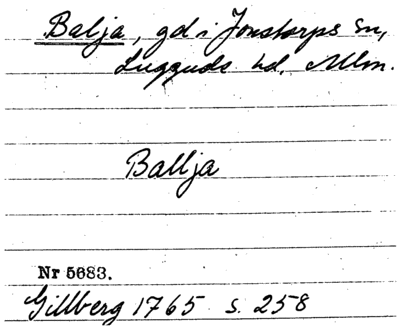 Balja, gd i Jonstorps sn,
Luggude hd, Mlm.
Ballja
Nr 5683.
Gillberg 1765 s. 258